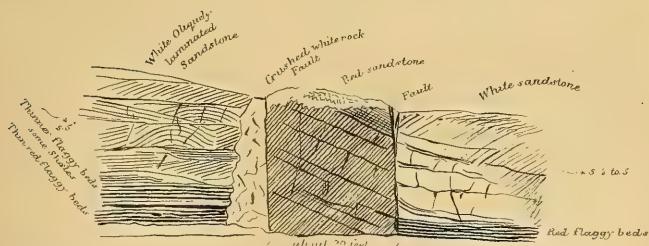 White Obliquely-
laminated
Sandstone
Crushed white rock
Fault
Red sandstone
Fault
White sandstone
5°
Thinner flaggy beds
some Shales
Thin red flaggy beds
5° to 5
Red flaggy beds
about